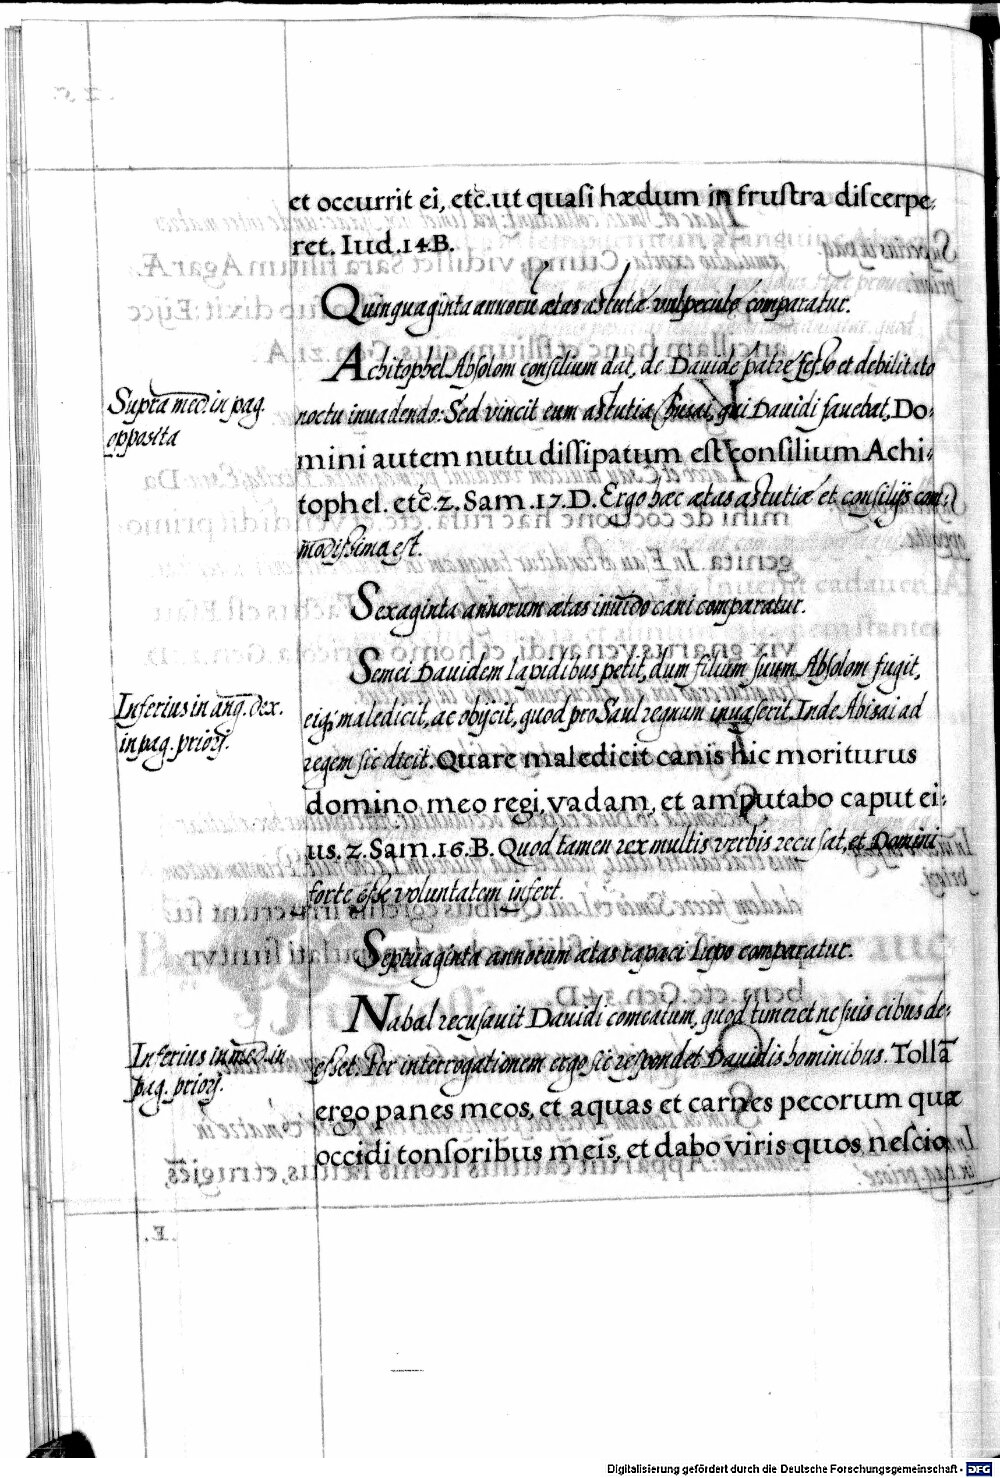 et occurrit ei, etc̄. ut quasi hædum in frustra discerpe-
ret. Iud. 14. B.
Quinquaginta annorū ætas astutæ vulpeculæ comparatur.
Supra med. in pag.
opposita
Achitophel Absolom consilium dat, de Dauide patre fesso et debilitato
noctu inuadendo: Sed vincit eum astutia Husai, qui Dauidi fauebat, Do-
mini autem nutu dissipatum est consilium Achi-
tophel. etc̄. 2. Sam. 17. D. Ergo hæc ætas astutiæ et consilijs com-
modissima est.
Sexaginta annorum ætas inuido cani comparatur.
Inferius in ang. dex.
in pag. priori.
Semei Dauidem lapidibus petit, dum filium suum Absolom fugit,
eiq; maledicit, ac obijcit, quod pro Saul regnum inuaserit. Inde Abisai ad
regem sic dicit. Quare maledicit canis hic moriturus
domino meo regi, vadam, et amputabo caput ei-
us. 2. Sam. 16. B. Quod tamen rex multis verbis recusat, et Domini
forte esse voluntatem infert.
Septuaginta annorum ætas rapaci Lupo comparatur.
Inferius in med. in
pag. priori.
Nabal recusauit Dauidi comeatum, quod timeret ne suis cibus de-
esset. Per interrogationem ergo sic respondet Dauidis hominibus. Tollā
ergo panes meos, et aquas et carnes pecorum quæ
occidi tonsoribus meis, et dabo viris quos nescio
Digitalisierung gefördert durch die Deutsche Forschungsgemeinschaft - DFG